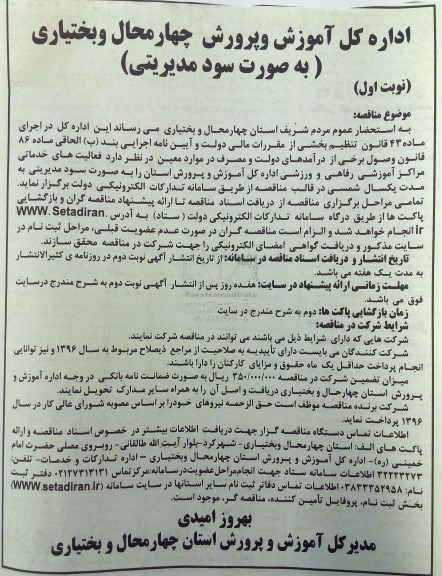 اداره کل آموزش وپرورش چهارمحال وبختیاری
( به صورت سود مدیریتی)
(نوبت اول)
موضوع مناقصه:
به استحضار عموم مردم شریف استان چهارمحال و بختیاری می رساند این اداره کل در اجرای
ماده ۴۳ قانون تنظیم بخشی از مقررات مالی دولت و آیین نامه اجرایی بند (ب) الحاقی ماده ۸۶
قانون وصول برخی از درآمدهای دولت و مصرف در موارد معین در نظر دارد فعالیت های خدماتی
مراکز آموزشی رفاهی و ورزشی اداره کل آموزش و پرورش استان را به صورت سود مدیریتی به
مدت یکسال شمسی در قالب مناقصه از طریق سامانه تدارکات الکترونیکی دولت برگزار نماید.
تمامی مراحل برگزاری مناقصه از دریافت اسناد مناقصه تا ارائه پیشنهاد مناقصه گران و بازگشایی
پاکت ها از طریق درگاه سامانه تدارکات الکترونیکی دولت ( ستاد) به آدرس WWW. Setadiran.
ir انجام خواهد شد و الزام است مناقصه گران در صورت عدم عضویت قبلی، مراحل ثبت نام در
سایت مذکور و دریافت گواهی امضای الکترونیکی را جهت شرکت در مناقصه محقق سازند.
تاریخ انتشار و دریافت اسناد مناقصه در سامانه: از تاریخ انتشار آگهی نوبت دوم در روزنامه ی کثیرالانتشار
به مدت یک هفته می باشد.
مهلت زمانی ارائه پیشنهاد در سایت: هفده روز پس از انتشار آگهی نوبت دوم به شرح مندرج درسایت
فوق می باشد.
زمان بازگشایی پاکت ها: دوم به شرح مندرج در سایت
شرایط شرکت در مناقصه:
شرکت هایی که دارای شرایط ذیل می باشند می توانند در مناقصه شرکت نمایند.
شرکت کنندگان می بایست دارای تأییدیه به صلاحیت از مراجع ذیصلاح مربوط به سال ۱۳۹۶ و نیز توانایی
انجام پرداخت حداقل یک ماه حقوق و مزایای کارکنان را دارا باشند.
میزان تضمین شرکت در مناقصه ۳۵۰/۰۰۰/۰۰۰ ریال به صورت ضمانت نامه بانکی در وجه اداره آموزش و
پرورش استان چهارحال و بختیاری دریافت و اصل آن را به همراه سایر مدارک تحویل نمایند.
شرکت برنده مناقصه موظف است حق الزحمه نیروهای خود را بر اساس مصوبه شورای عالی کار در سال
۱۳۹۶ پرداخت نماید.
اطلاعات تماس دستگاه مناقصه گزار جهت دریافت اطلاعات بیشتر در خصوص اسناد مناقصه و ارائه
پاکت های الف: استان چهارمحال وبختیاری- شهرکرد-بلوار آیت الله طالقانی- روبروی مصلی حضرت امام
خمینی (ره)- اداره کل آموزش و پرورش استان چهارمحال وبختیاری – اداره تدارکات و خدمات- تلفن:
۳۲۲۲۳۲۷۳ اطلاعات سامانه ستاد جهت انجام مراحل عضویت در سامانه: مرکز تماس ۰۲۱۲۷۳۱۳۱۳۱ دفتر ثبت
نام: ۰۳۸۳۳۳۵۲۹۵۸ اطلاعات تماس دفاتر ثبت نام سایر استانها در سایت سامانه (WWW.setadiran.ir)
بخش ثبت نام، پروفایل تأمین کننده، مناقصه گر، موجود است.
بهروز امیدی
مدیرکل آموزش و پرورش استان چهارمحال و بختیاری